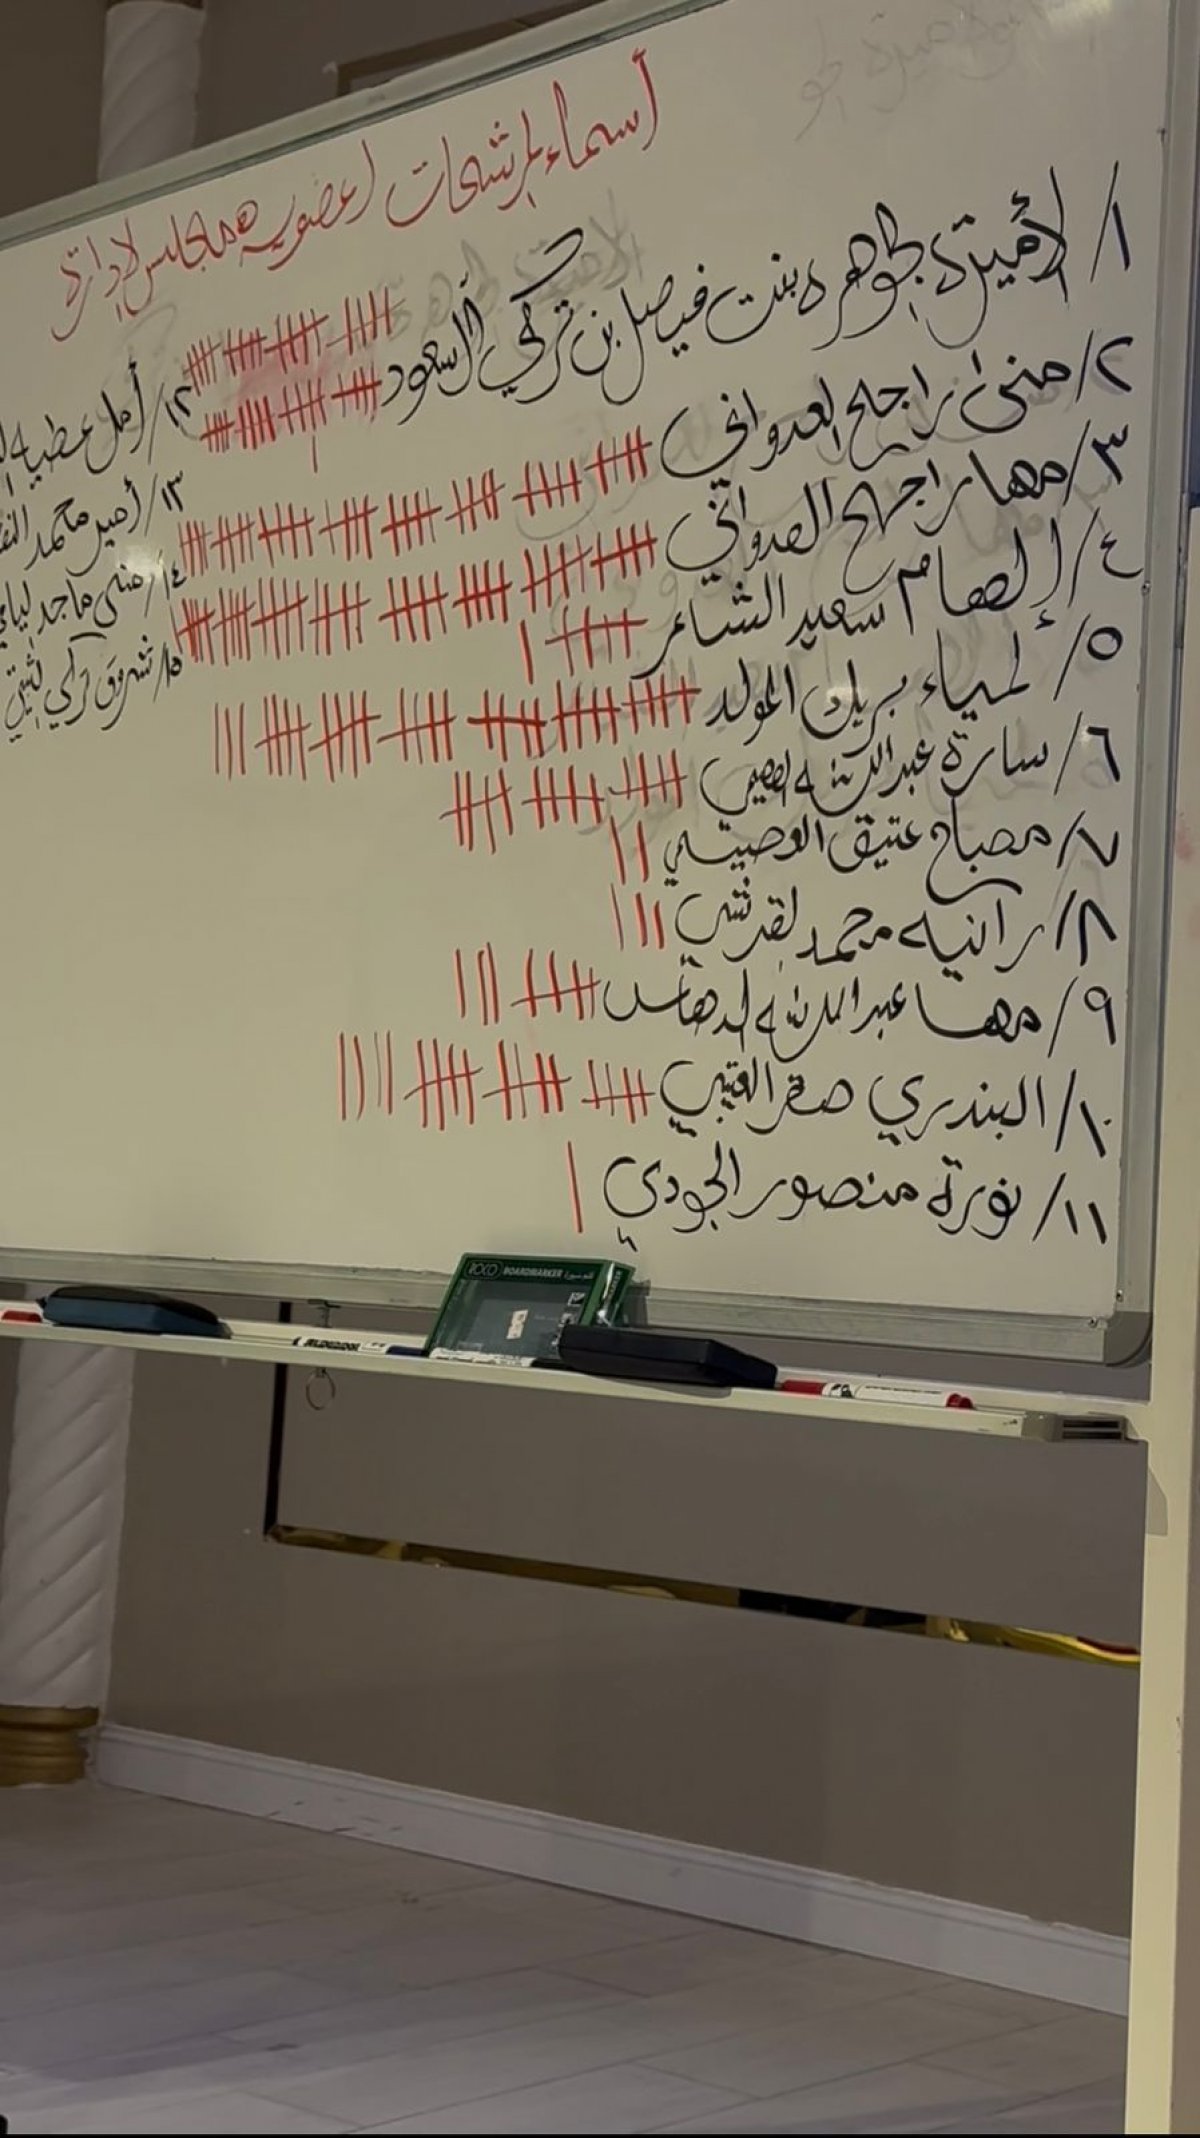 أسماء المرشحات لعضوية مجلس الإدارة
١/ الأميرة الجوهره بنت فيصل بن تركي آل سعود
٢/ منى راجح العدواني
٣/ مها راجح العدواني
٤/ إلهام سعيد الشاعر
٥/ لمياء بريك المولد
٦/ سارة عبدالله العصيمي
٧/ مصباح عتيق
٨/ رانيه محمد القرشي
٩/ مها عبدالله الدهاس
١٠/ البندري صقر العتيبي
١١/ نورة منصور الجودي
١٢/ أمل عطيه
١٣/ محمد
١٤/ منى ماجد
١٥/ شروق
ROCO BOARDMARKER